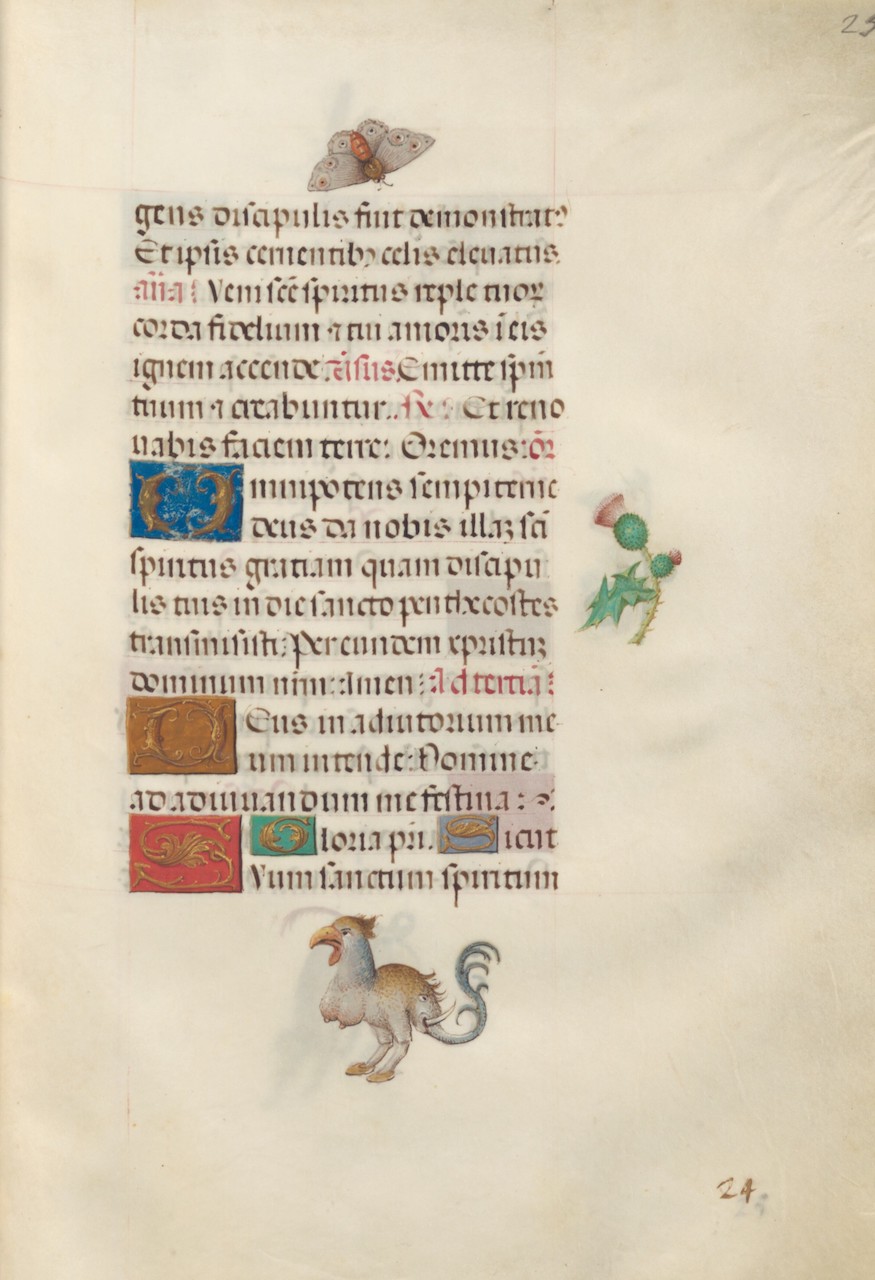 25
gens discipulis fiut demonstrat?
Et ipsis cernentibꝫ celis eleuatus.
al͞l͞a: Veni sc̄e spiritus reple tuoꝝ
corda fidelium ⁊ tui amoris i eis
ignem accende. Emitte spm̄
tuum ⁊ creabuntur. ℟: Et reno
uabis faciem terre: Oremus: or̄
Omnipotens sempiterne
deus da nobis illaꝫ sc̄i
spiritus gratiam quam discipu
lis tuis in die sancto penthecostes
transmisisti: Per eundem xpristuꝫ
dominum nrm̄: Amen: Ad tertia͞:
Deus in adiutorium me
um intende: Domine
ad adiuuandum me festina:
Gloria pri. Sicut
SVum sanctum spiritum
24